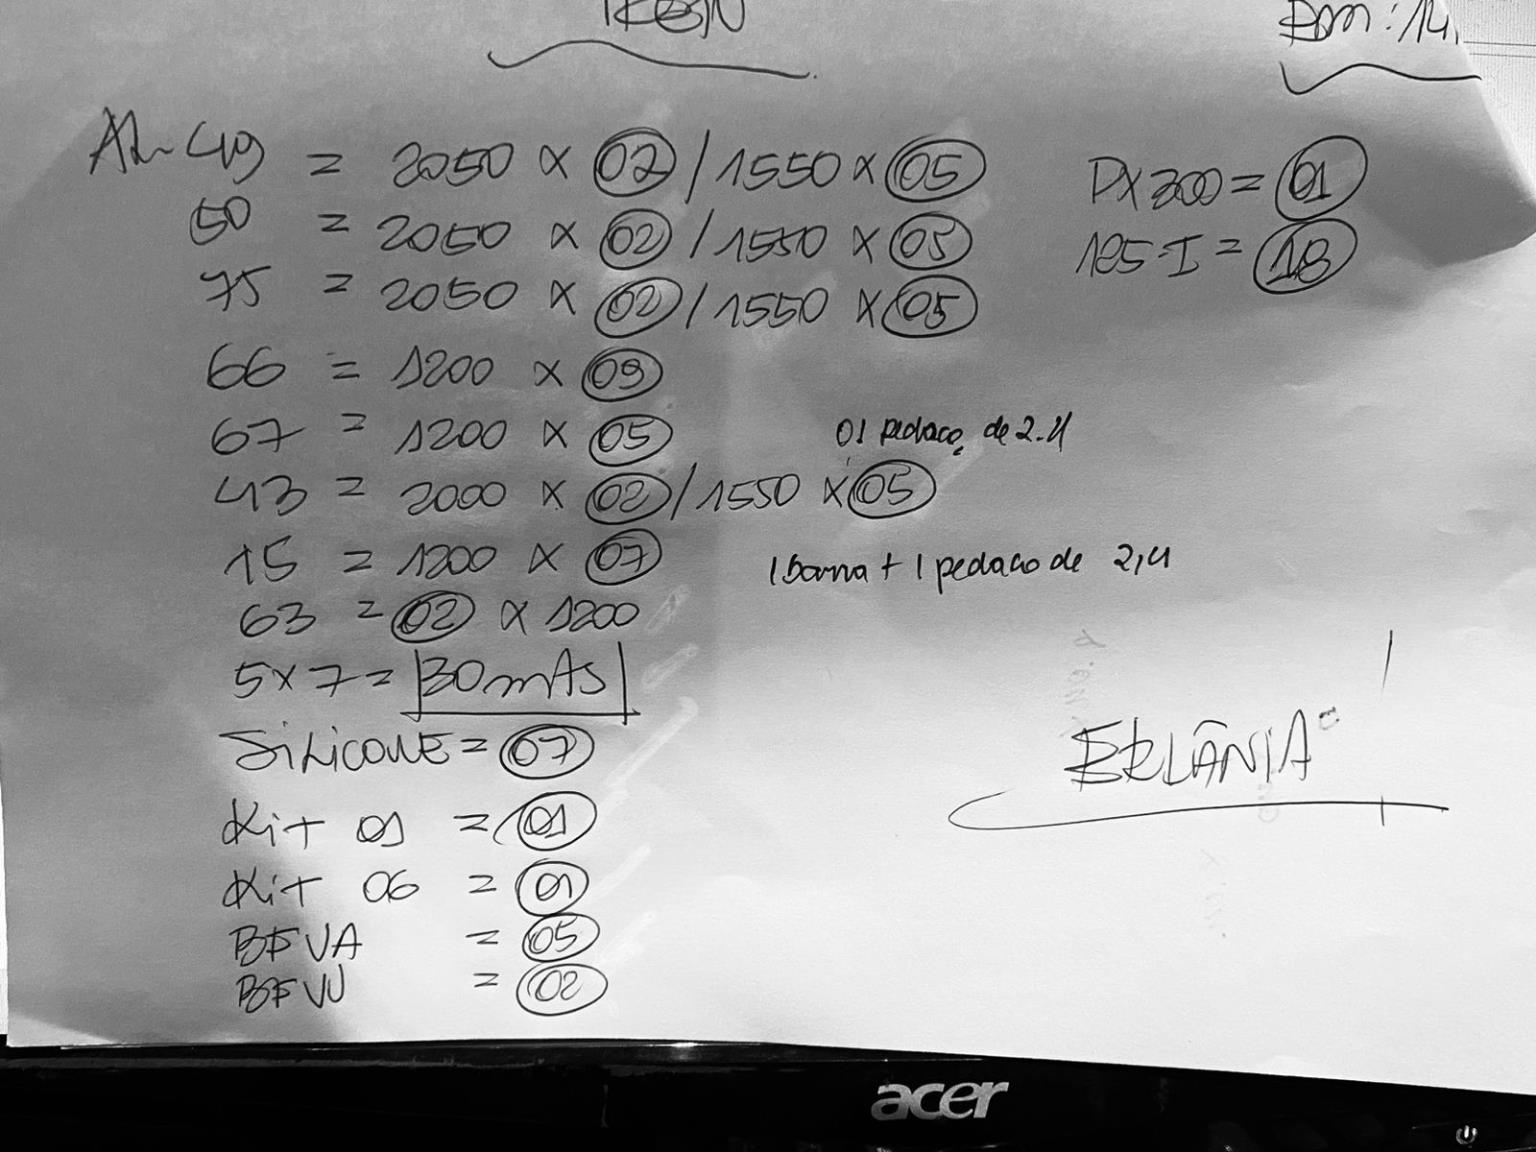 AL-49 = 2050 x 02 / 1550 x 05
50 = 2050 x 02 / 1550 x 05
75 = 2050 x 02 / 1550 x 05
66 = 1200 x 09
67 = 1200 x 05
01 pedaço de 2.4
43 = 2000 x 02 / 1550 x 05
15 = 1200 x 07
1 barra + 1 pedaço de 2,4
63 = 02 x 1200
5x7 = 30mts
SiLiCONE = 07
Kit 01 = 01
Kit 06 = 01
BFVA = 05
BFVU = 02
PX200 = 01
125-I = 18
ERLÂNIA
acer